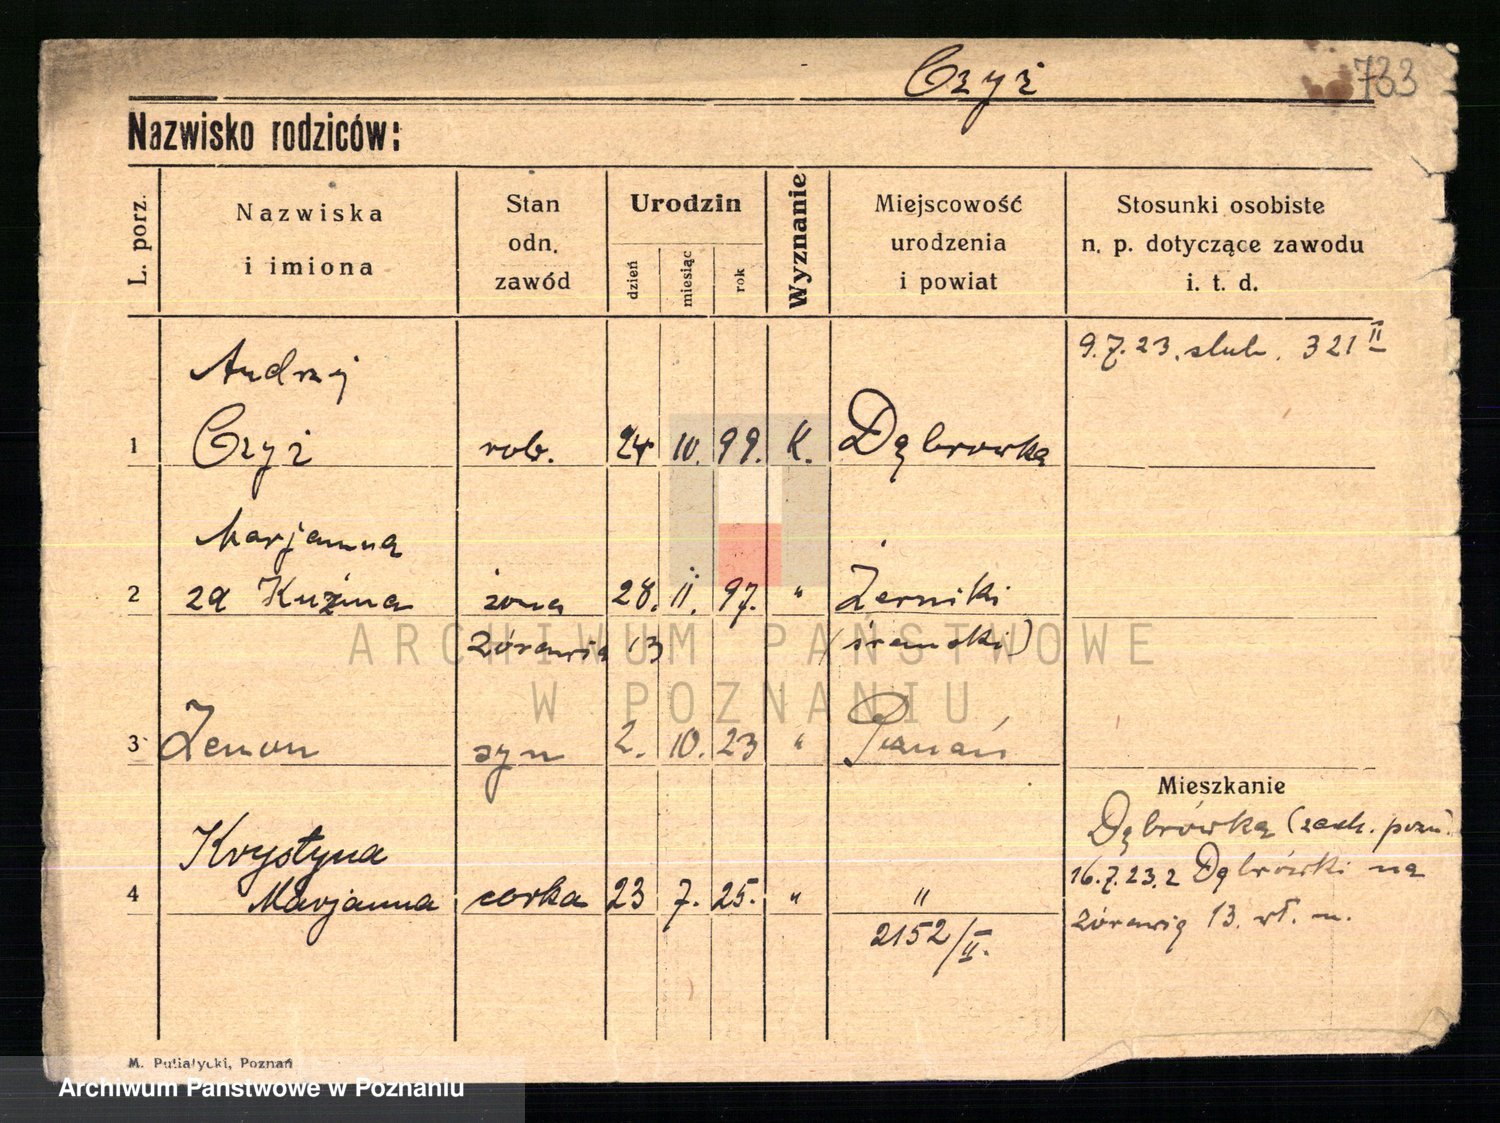 Czyż 733
Nazwisko rodziców:
L. porz.
Nazwiska
i imiona
Stan
odn.
zawód
Urodzin
dzień
miesiąc
rok
Wyznanie
Miejscowość
urodzenia
i powiat
Stosunki osobiste
n. p. dotyczące zawodu
i. t. d.
9.7.23. slub. 321 II
Andrzej
1 Czyż rob. 24 10. 99. K. Dąbrowka
Marjanna
2 za Kuźma żona 28. 11. 97. " Żerniki
Żórawia 13 (śremski)
3 Zenon syn 2. 10. 23 " Poznań
Mieszkanie
Dąbrówka (zach. pozn.
Krystyna
16.7.23. z Dąbrówki na
4 Marjanna córka 23 7. 25. " "
Żórawią 13. wł. m.
2152/II.
M. Putiatycki, Poznań
ARCHIWUM PAŃSTWOWE
W POZNANIU
Archiwum Państwowe w Poznaniu